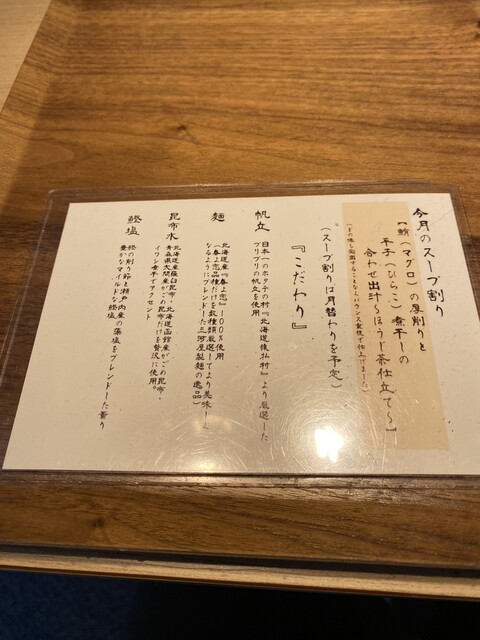 今月のスープ割り
【鮪(マグロ)の厚削りと
平子(ひらこ)煮干しの
合わせ出汁～ほうじ茶仕立て～】
(どの味も突出することなくバランス重視で仕上げました)
(スープ割りは月替わりを予定)
『こだわり』
帆立
日本一のホタテの村『北海道猿払村』より厳選した
プリプリの帆立を使用
麺
北海道産『春よ恋』100%使用
(春よ恋品種だけを数種類厳選してより美味しく
なるようにブレンドした三河屋製麺の逸品)
昆布水
北海道産羅臼昆布・北海道函館産がごめ昆布・
青森県大間産がごめ昆布だけを贅沢に使用。
イワシ煮干でアクセント
鰹塩
鰹の削り節と瀬戸内産の藻塩をブレンドした薫り
豊かなマイルドな鰹塩